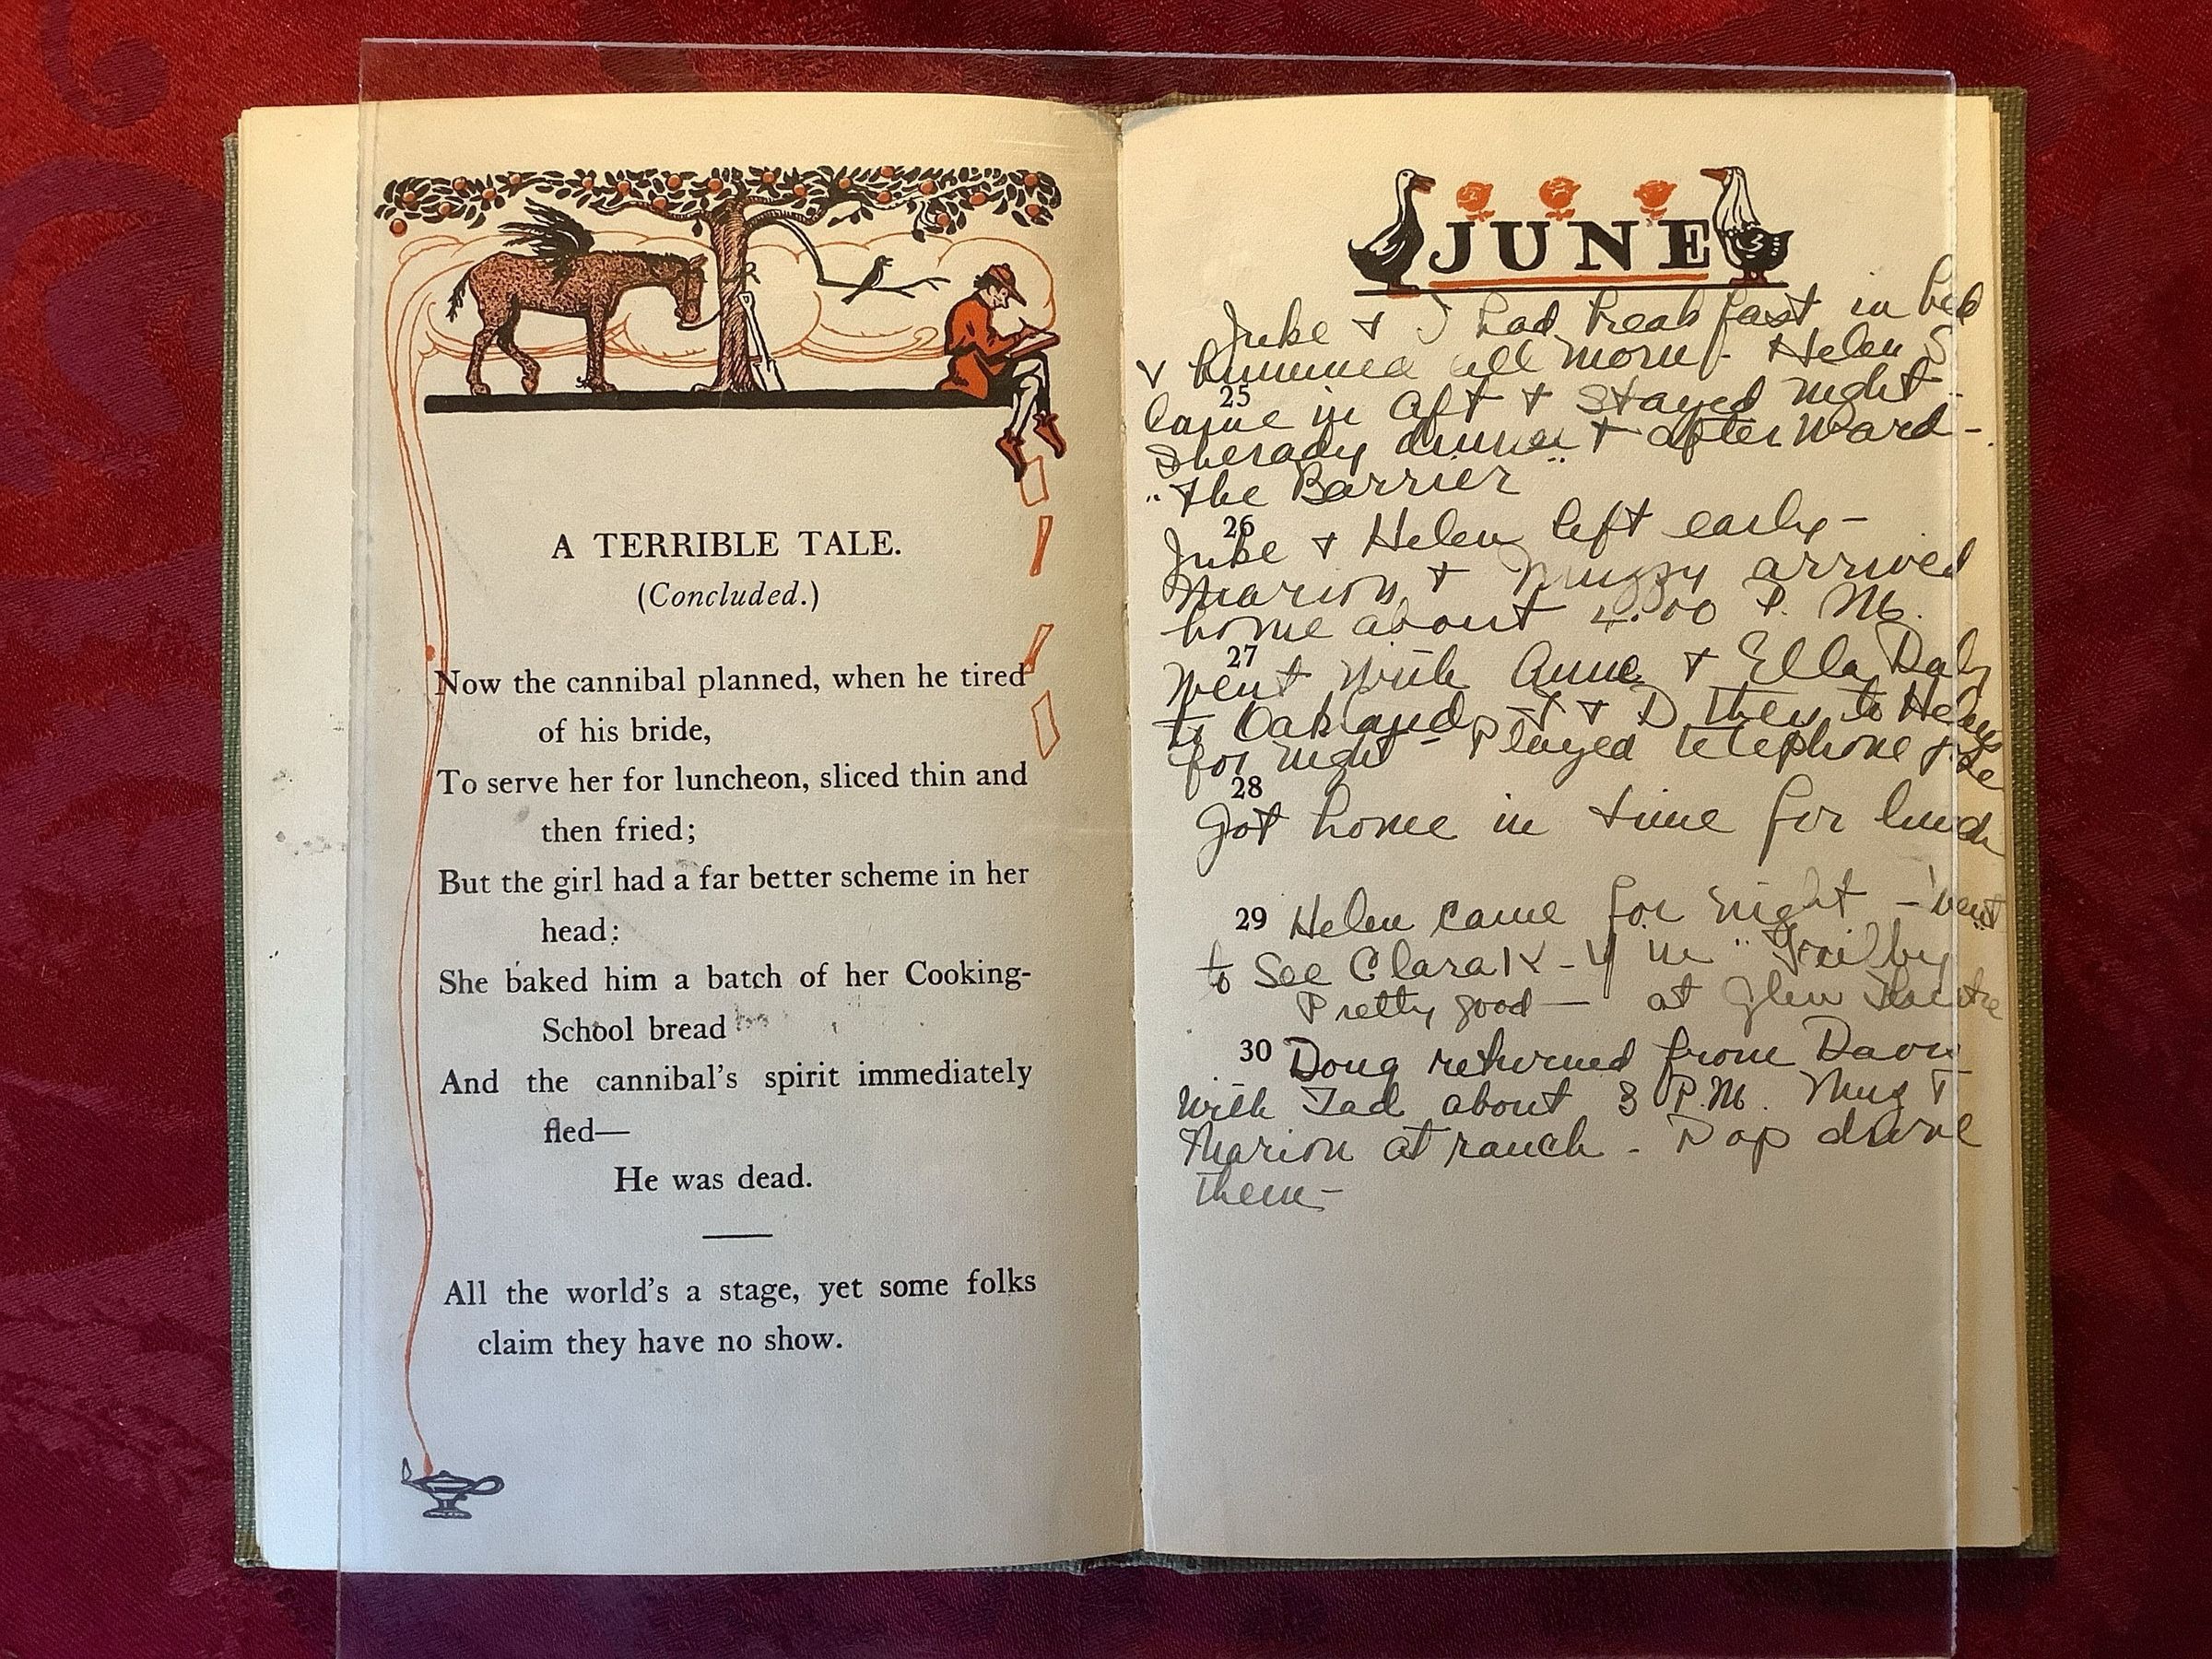 A TERRIBLE TALE.
(Concluded.)
Now the cannibal planned, when he tired
of his bride,
To serve her for luncheon, sliced thin and
then fried;
But the girl had a far better scheme in her
head;
She baked him a batch of her Cooking-
School bread
And the cannibal's spirit immediately
fled—
He was dead.
All the world's a stage, yet some folks
claim they have no show.
JUNE
& I had breakfast in bed
& bummed all morn. Helen S
25
came in aft & stayed night -
dinner & afterward -
"The Barrier
26
& Helen left early -
Marion & Muzzy arrived
home about 4:00 P. M.
27
Went with Anne & Ella Daly
to Oakland - T & D then to Helens
for night - Played telephone
28
Got home in time for lunch
29 Helen came for night - went
to see Clara K-Y in "Trilby"
Pretty good - at Glen Theatre
30 Doug returned from Davis
with Tad about 3 P.M. Muz &
Marion at ranch - Pop drove
them -